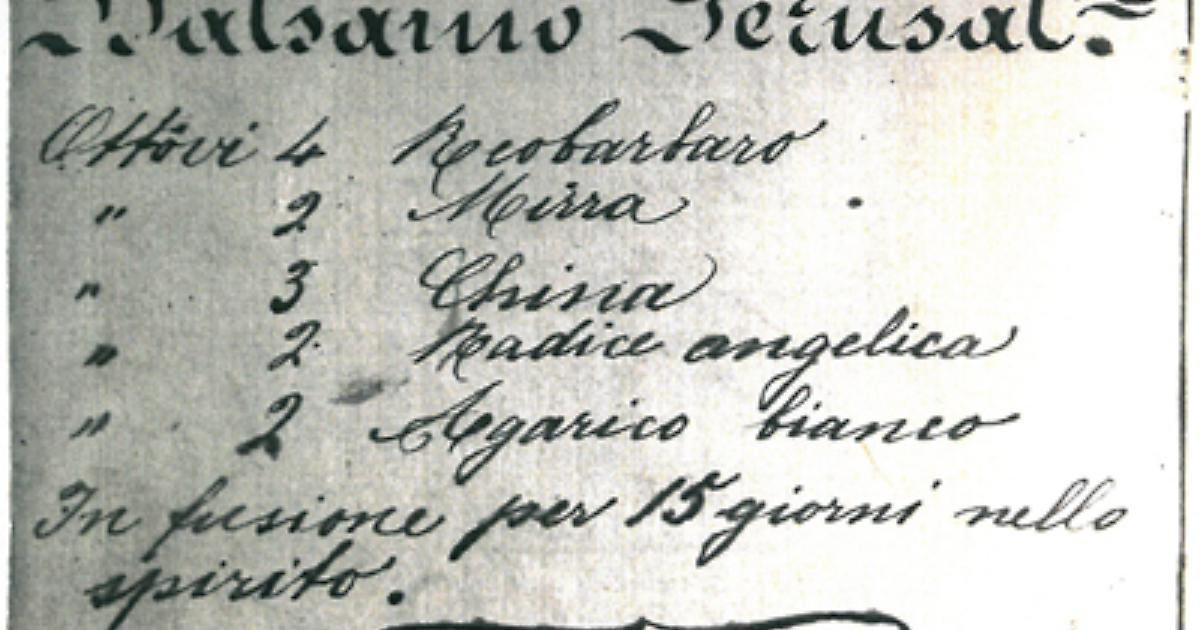 Balsamo Jerusal.
Ottavi 4 Reobarbaro
" 2 Mirra
" 3 China
" 2 Radice angelica
" 2 Agarico bianco
In fusione per 15 giorni nello
spirito.